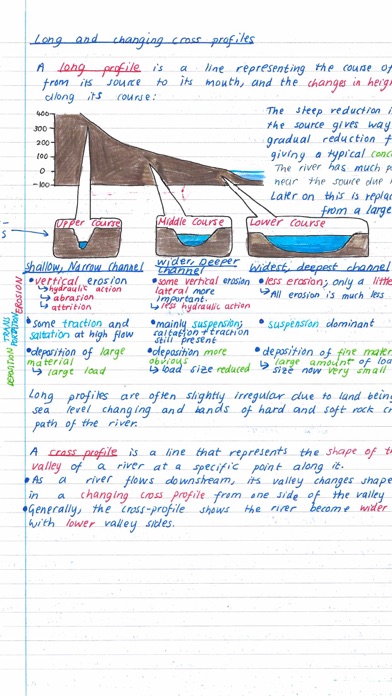 Long and changing cross profiles
A long profile is a line representing the course of
from its source to its mouth, and the changes in heigh
along its course:
The steep reduction i
the source gives way
gradual reduction f
giving a typical conc
The river has much p
near the source due
Later on this is replac
from a large
400
300
200
100
0
-100
s
Upper Course
Middle Course
Lower Course
shallow, Narrow channel
wider, Deeper channel
widest, deepest channel
EROSION
• vertical erosion
↳ hydraulic action
↳ abrasion
↳ attrition
• some vertical erosion
lateral more
important.
↳ less hydraulic action
• less erosion; only a little
↳ All erosion is much less
TRANS
PORTATION
• some traction and
saltation at high flow
• mainly suspension;
saltation + traction
still present
• suspension dominant
• deposition of large
material
↳ large load
• deposition more
obvious
↳ load size reduced
• deposition of fine mater
↳ large amount of loa
size now very small
Long profiles are often slightly irregular due to land being
sea level changing and bands of hard and soft rock cr
path of the river.
A cross profile is a line that represents the shape of th
valley of a river at a specific point along it.
• As a river flows downstream, its valley changes shape
in a changing cross profile from one side of the valley
• Generally, the cross-profile shows the river become wider
with lower valley sides.